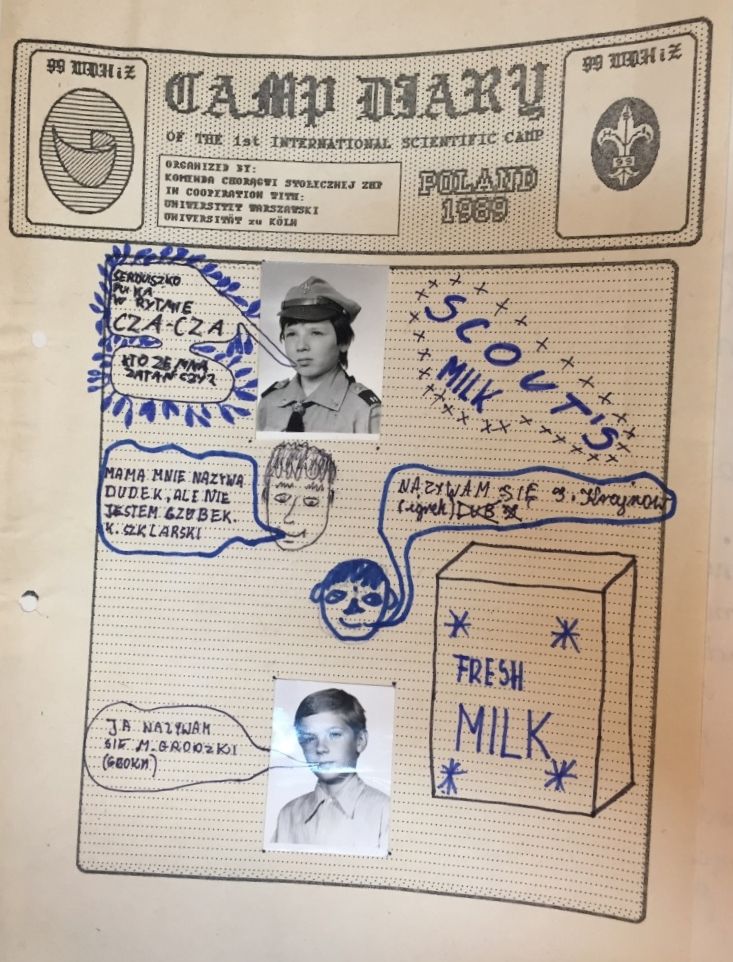 99 WDHiZ
CAMP DIARY
99 WDHiZ
OF THE 1st INTERNATIONAL SCIENTIFIC CAMP
ORGANIZED BY:
KOMENDA CHORĄGWI STOŁECZNEJ ZHP
IN COOPERATION WITH:
UNIWERSYTET WARSZAWSKI
UNIVERSITÄT zu KÖLN
POLAND
1989
99
SERDUSZKO
PUKA
W RYTMIE
CZA-CZA
KTO ZE MNĄ
ZATAŃCZY?
SCOUT'S
MILK
MAMA MNIE NAZYWA
DUDEK, ALE NIE
JESTEM CZUBEK.
K. SZKLARSKI
NAZYWAM SIĘ
(igrek)
JA NAZYWAM
SIĘ M. GRODZKI
FRESH
MILK